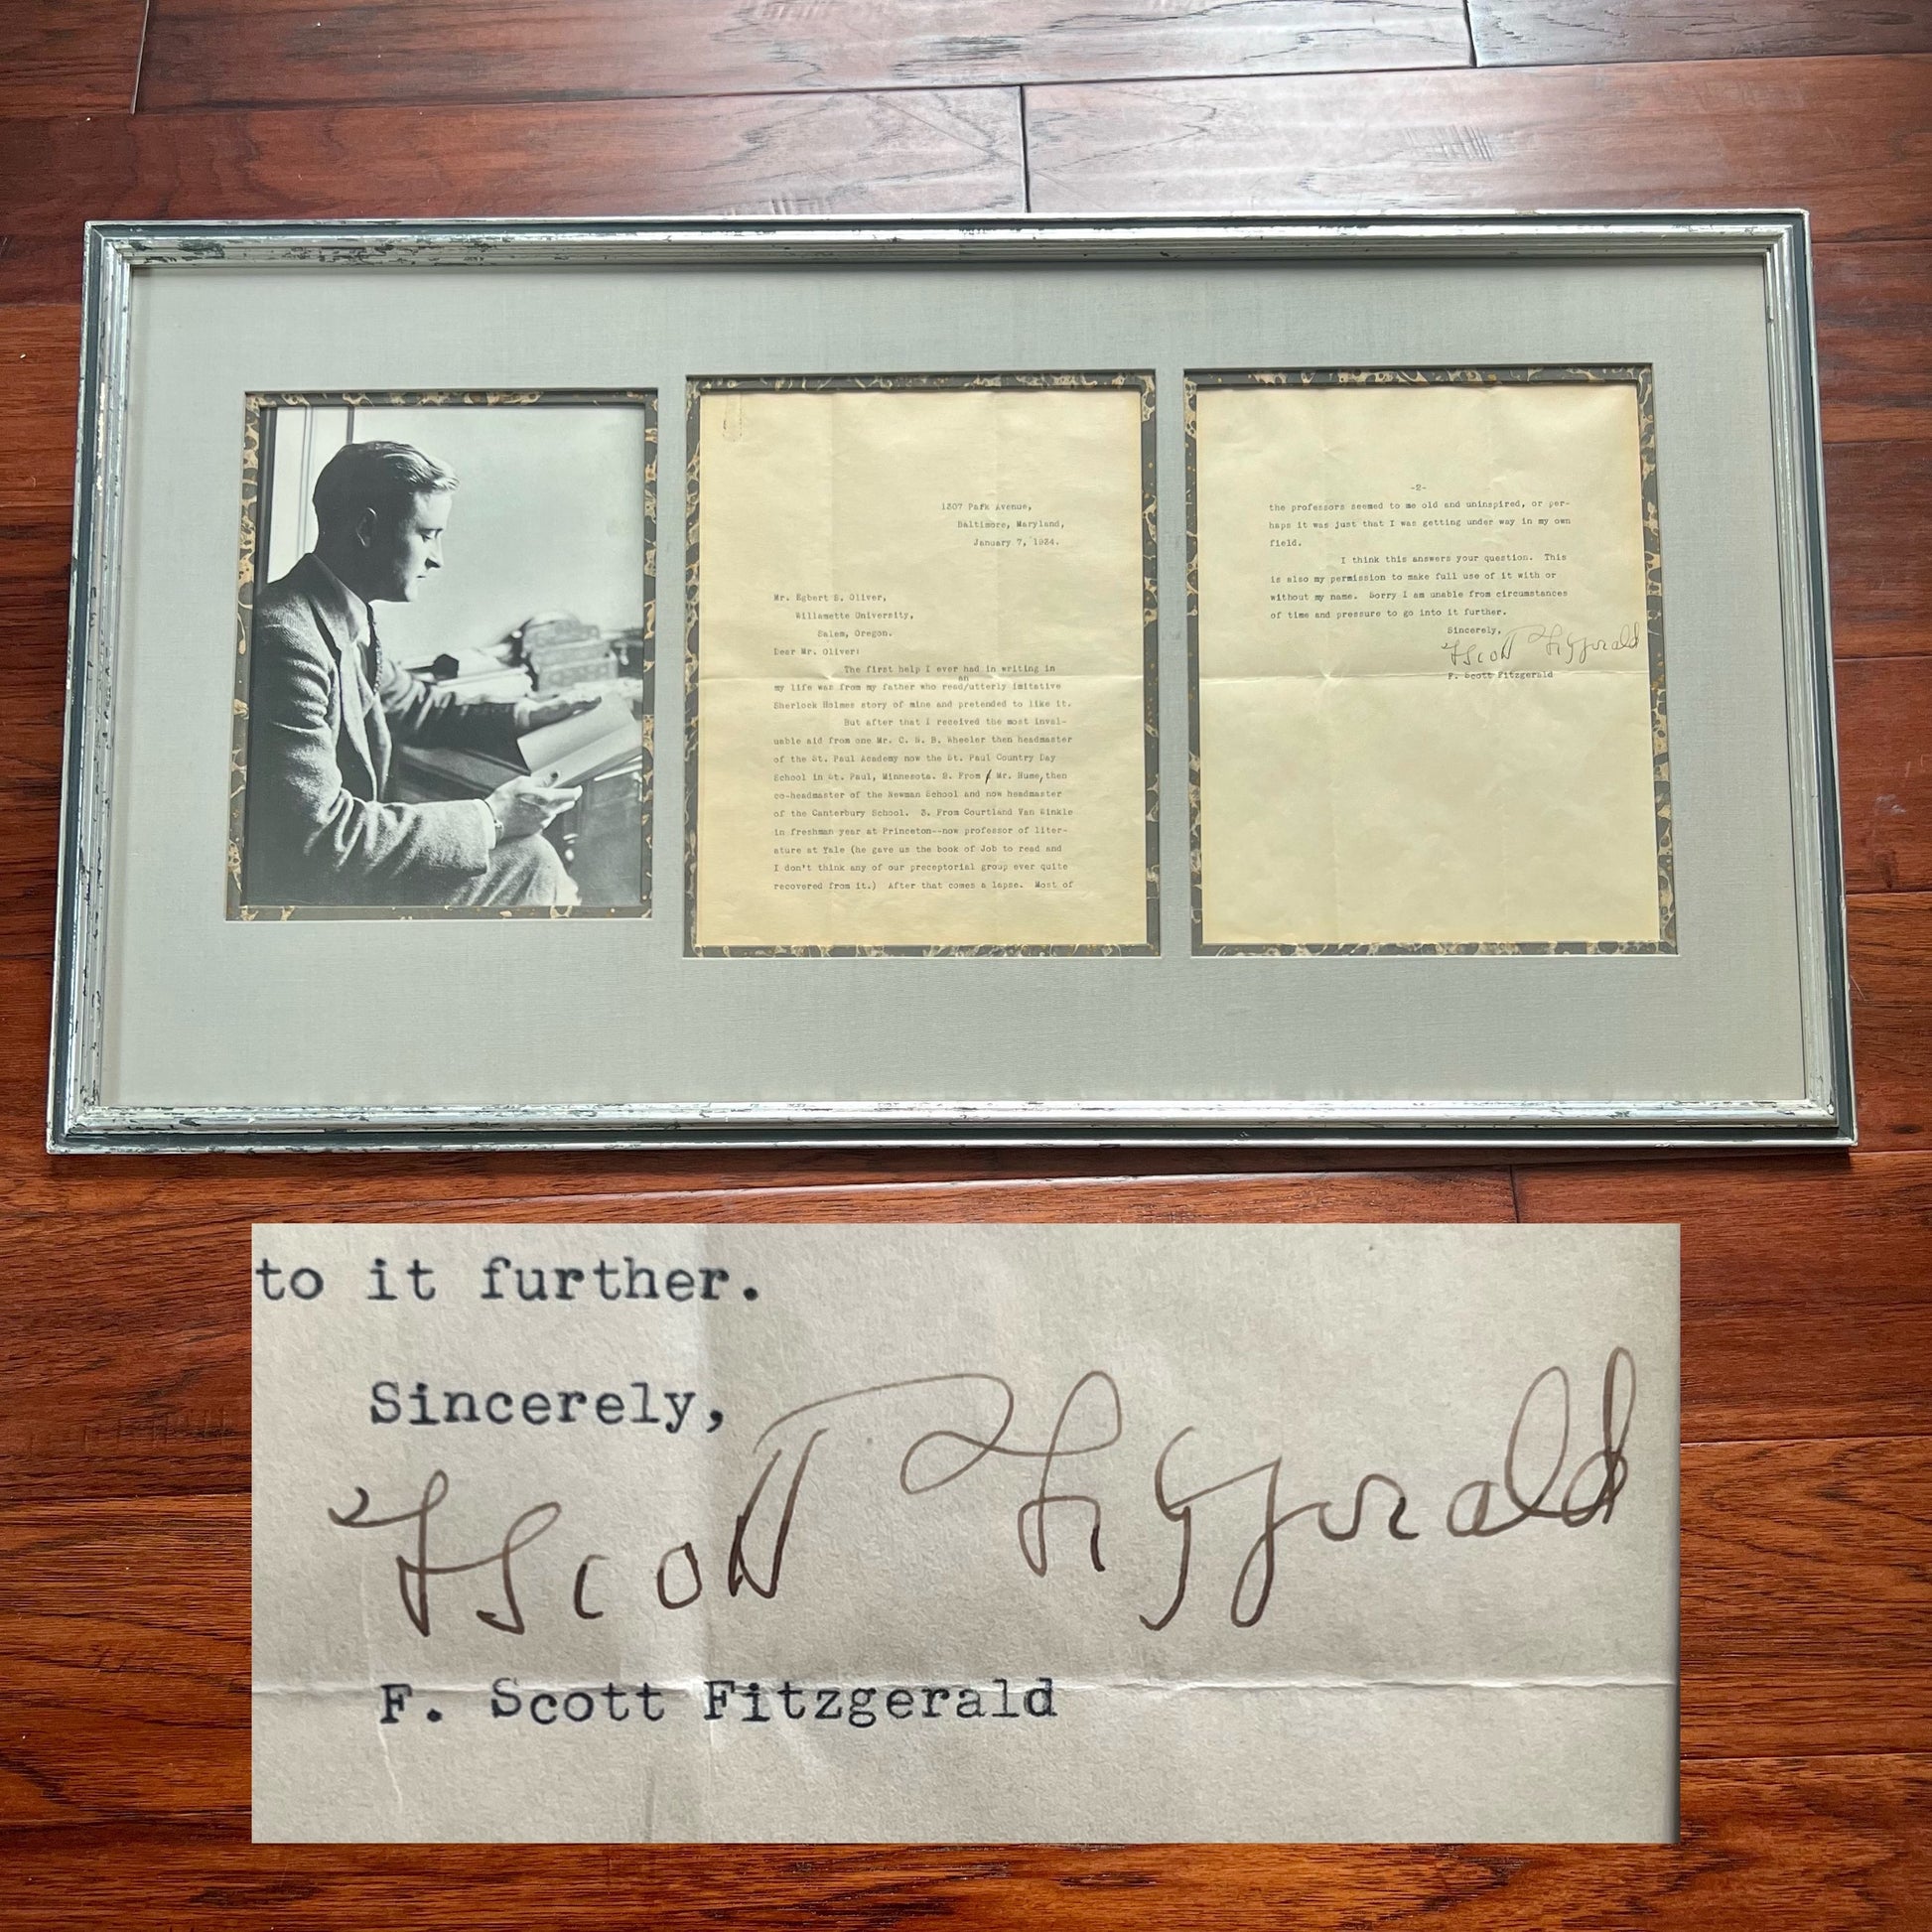 1307 Park Avenue,
Baltimore, Maryland,
January 7, 1934.
Mr. Egbert S. Oliver,
Willamette University,
Salem, Oregon.
Dear Mr. Oliver:
The first help I ever had in writing in
an
my life was from my father who read/utterly imitative
Sherlock Holmes story of mine and pretended to like it.
But after that I received the most inval-
uable aid from one Mr. C. N. B. Wheeler then headmaster
of the St. Paul Academy now the St. Paul Country Day
School in St. Paul, Minnesota. 2. From Mr. Hume, then
co-headmaster of the Newman School and now headmaster
of the Canterbury School. 3. From Courtland Van Winkle
in freshman year at Princeton--now professor of liter-
ature at Yale (he gave us the book of Job to read and
I don't think any of our preceptorial group ever quite
recovered from it.) After that comes a lapse. Most of
-2-
the professors seemed to me old and uninspired, or per-
haps it was just that I was getting under way in my own
field.
I think this answers your question. This
is also my permission to make full use of it with or
without my name. Sorry I am unable from circumstances
of time and pressure to go into it further.
Sincerely,
F Scott Fitzgerald
F. Scott Fitzgerald
to it further.
Sincerely,
F Scott Fitzgerald
F. Scott Fitzgerald